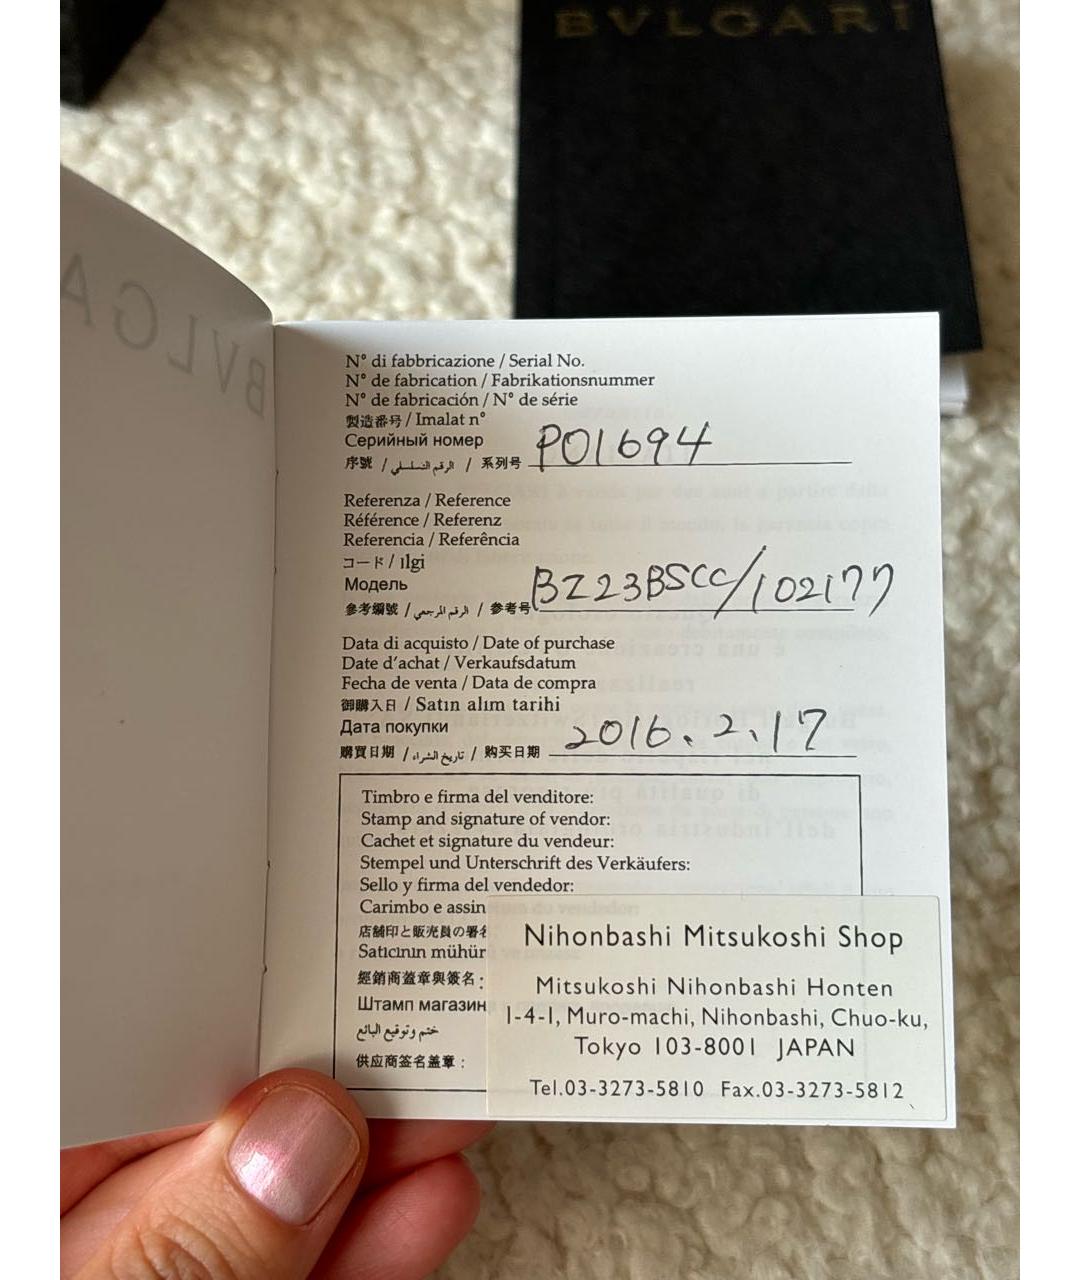 BVLGARI
BVLGA
N° di fabbricazione / Serial No.
N° de fabrication / Fabrikationsnummer
N° de fabricación / N° de série
製造番号 / Imalat n°
Серийный номер
序號 / الرقم التسلسلي / 系列号 P01694
Referenza / Reference
Référence / Referenz
Referencia / Referência
コード / ılgi
Модель
參考編號 / الرقم المرجعي / 参考号 BZ23BSCC/102177
Data di acquisto / Date of purchase
Date d'achat / Verkaufsdatum
Fecha de venta / Data de compra
御購入日 / Satın alım tarihi
Дата покупки
購買日期 / تاريخ الشراء / 购买日期 2016.2.17
Timbro e firma del venditore:
Stamp and signature of vendor:
Cachet et signature du vendeur:
Stempel und Unterschrift des Verkäufers:
Sello y firma del vendedor:
Carimbo e assin
店舗印と販売員の署名
Satıcının mühür
經銷商蓋章與簽名:
Штамп магазин
ختم وتوقيع البائع
供应商签名盖章:
Nihonbashi Mitsukoshi Shop
Mitsukoshi Nihonbashi Honten
1-4-1, Muro-machi, Nihonbashi, Chuo-ku,
Tokyo 103-8001 JAPAN
Tel.03-3273-5810 Fax.03-3273-5812